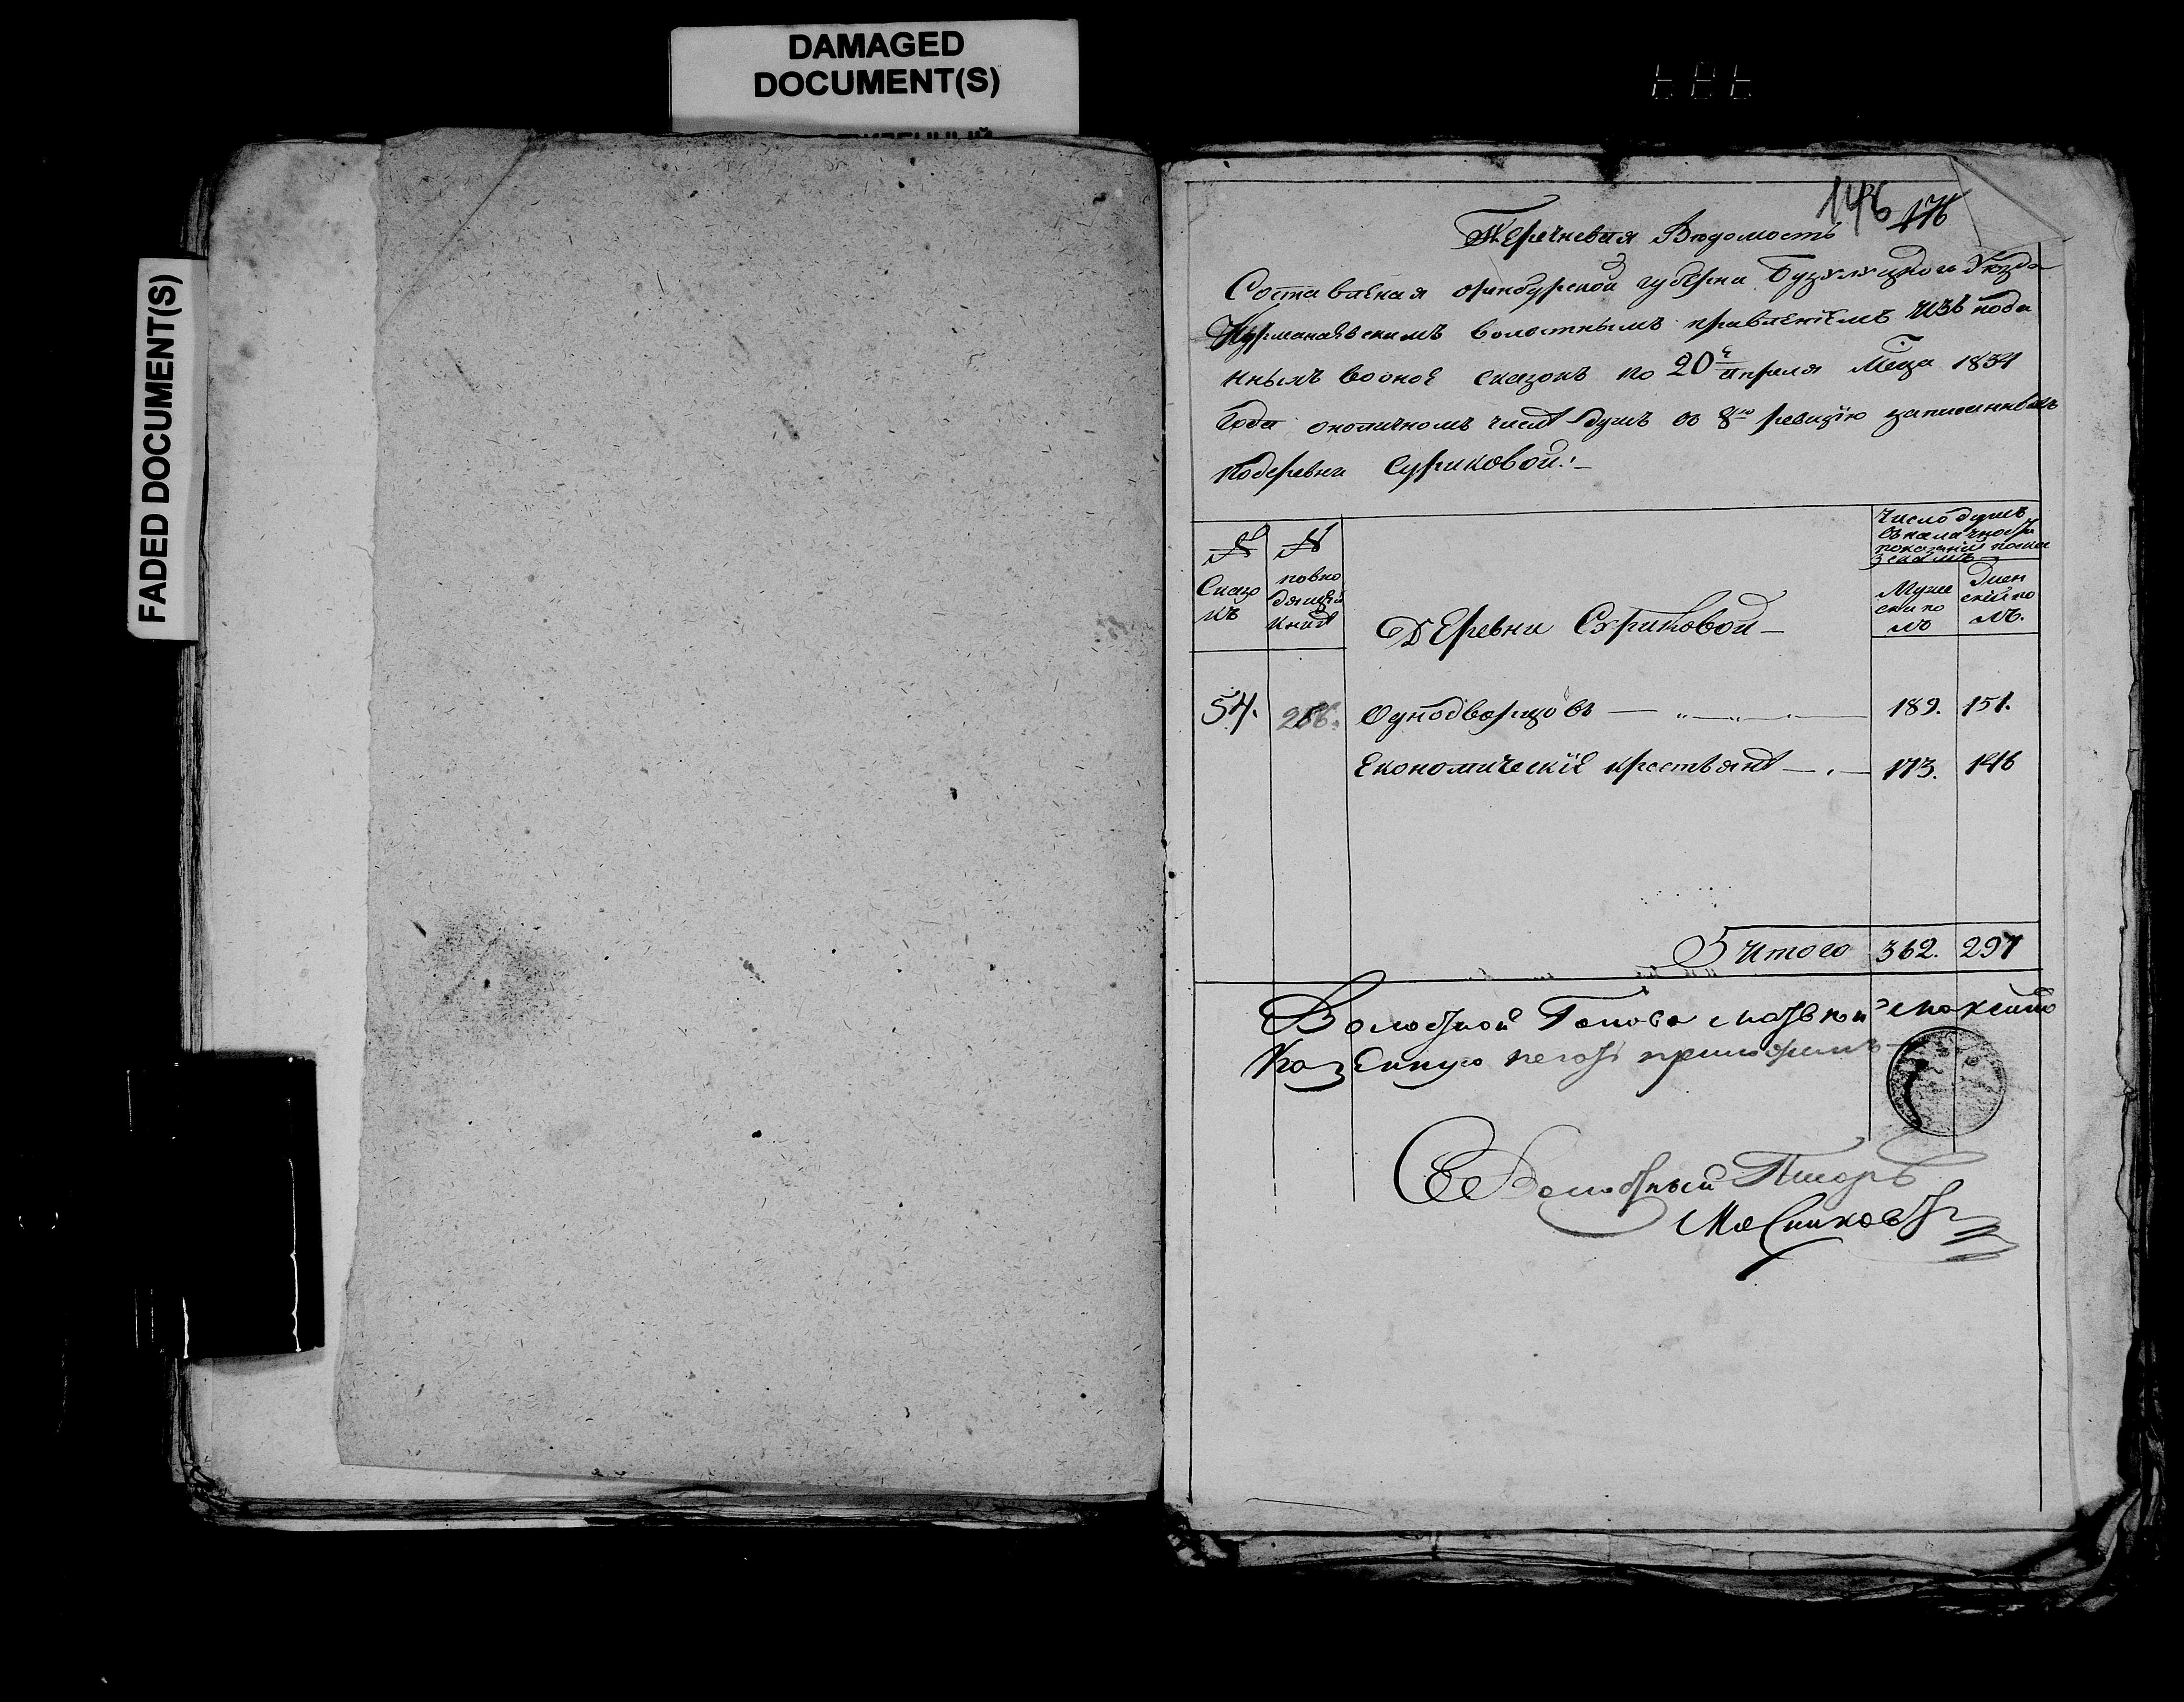 DAMAGED
DOCUMENT(S)
FADED DOCUMENT(S)
146 176
Перечневая Вѣдомость
Составленая оренбурской губерни Бузулуцкого Уѣзда
Курманаевскимъ волостнымъ правленіемъ изъ пода
нныхъ вооное сказокъ по 20е апреля Меца 1834
Года оналичномъ числѣ душъ во 8ю ревизію записанныхъ
подеревни Суриковой:—
№ Сказо къ
№ повхо дящей книгѣ
Деревни Суриковой—
Число душъ
въ наличности
показаній поска
зкамъ
Муже ски по лъ
Жен скій по лъ.
54. Однодворцовъ — „—„—„— 189. 151.
Економическіе крестьянѣ —„— 173. 146
Итого 362. 297
Волостной Голова
Казенную печать приложилъ
Волостный Писорь